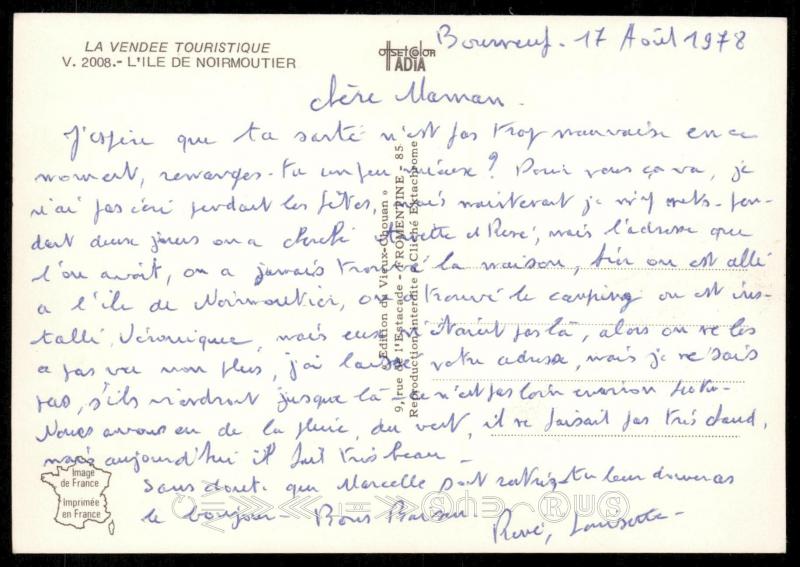 LA VENDEE TOURISTIQUE
V. 2008.- L'ILE DE NOIRMOUTIER
OFFSETCOLOR
ADIA
Bourneuf. 17 Août 1978
chère Maman.
J'espère que ta santé n'est pas trop mauvaise en ce
moment, remanges-tu un peu mieux? Pour nous ça va, je
n'ai pas écri pendant les fêtes, mais maintenant je m'y mets. pen-
dant deux jours on a cherché et René, mais l'adresse que
l'on avait, on a jamais trouvé la maison, hier on est allé
a l'île de Noirmoutier, on a trouvé le camping ou est ins-
tallé Véronique, mais eux n'étaient pas là, alors on ne les
a pas vu non plus, j'ai laissé votre adresse, mais je ne sais
pas, s'ils viendront jusque là - ce n'est pas loin environ
Nous avons eu de la pluie, du vent, il ne faisait pas très chaud,
mais aujourd'hui il fait très beau -
Sans doute que Marcelle sont rentrés - tu leur donneras
le bonjour - Bons Baisers.
René, Louisette -
« Edition du Vieux-Chouan »
9, rue de l'Estacade - FROMENTINE - 85
Reproduction interdite - Cliché Extachrome
Image
de France
Imprimée
en France